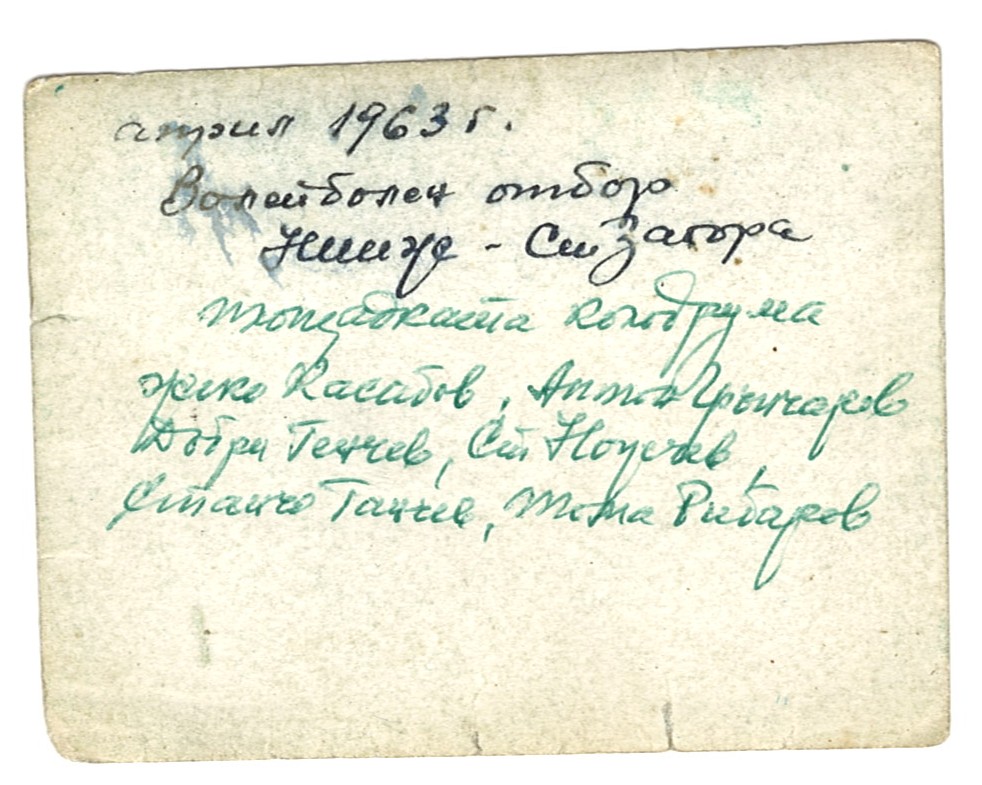 април 1963 г.
Волейболен отбор
НИИЖ - Ст Загора
площадката колодрума
Жеко Касабов, Антон Грънчаров
Добри Генчев, Ст
Станчо Танчев, Тома Рибаров